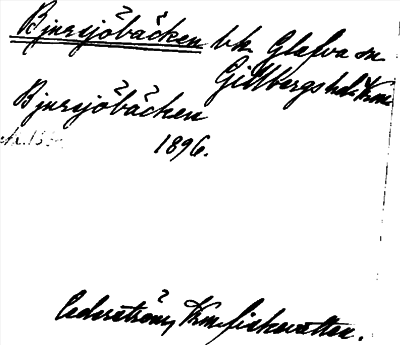 Bjursjöbäcken bk Glafva sn
Gillbergs hd. Vrm.
Bjursjöbäcken
1896.
Cederström, Vrm. fiskevatten.